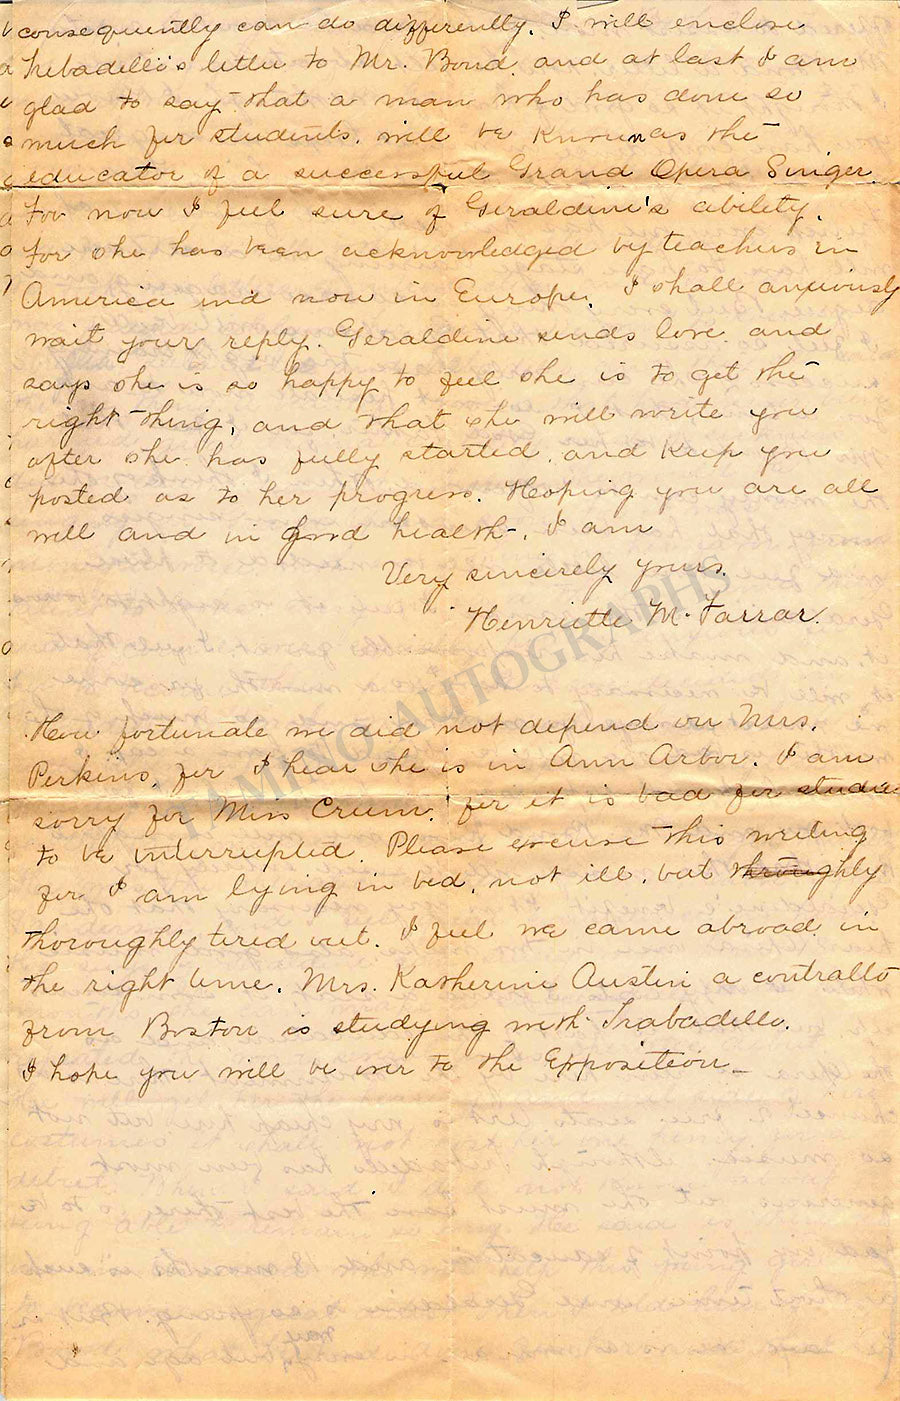 consequently can do differently. I will enclose
Trabadello's letter to Mr. Bond. and at last I am
glad to say that a man who has done so
much for students. will be known as the
educator of a successful Grand Opera Singer.
For now I feel sure of Geraldine's ability.
For she has been acknowledged by teachers in
America and now in Europe. I shall anxiously
wait your reply. Geraldine sends love and
says she is so happy to feel she is to get the
right thing, and that she will write you
after she has fully started. and keep you
posted as to her progress. Hoping you are all
well and in good health. I am
Very sincerely yours.
Henrietta M. Farrar.
TAMINO AUTOGRAPHS
How fortunate we did not depend on Mrs.
Perkins, for I hear she is in Ann Arbor. I am
sorry for Miss Crum. for it is bad for studies
to be interrupted. Please excuse this writing
for I am lying in bed, not ill. but throughly
thoroughly tired out. I feel we came abroad in
the right time. Mrs. Katherine Austin a contralto
from Boston is studying with Trabadello.
I hope you will be over to the Exposition_